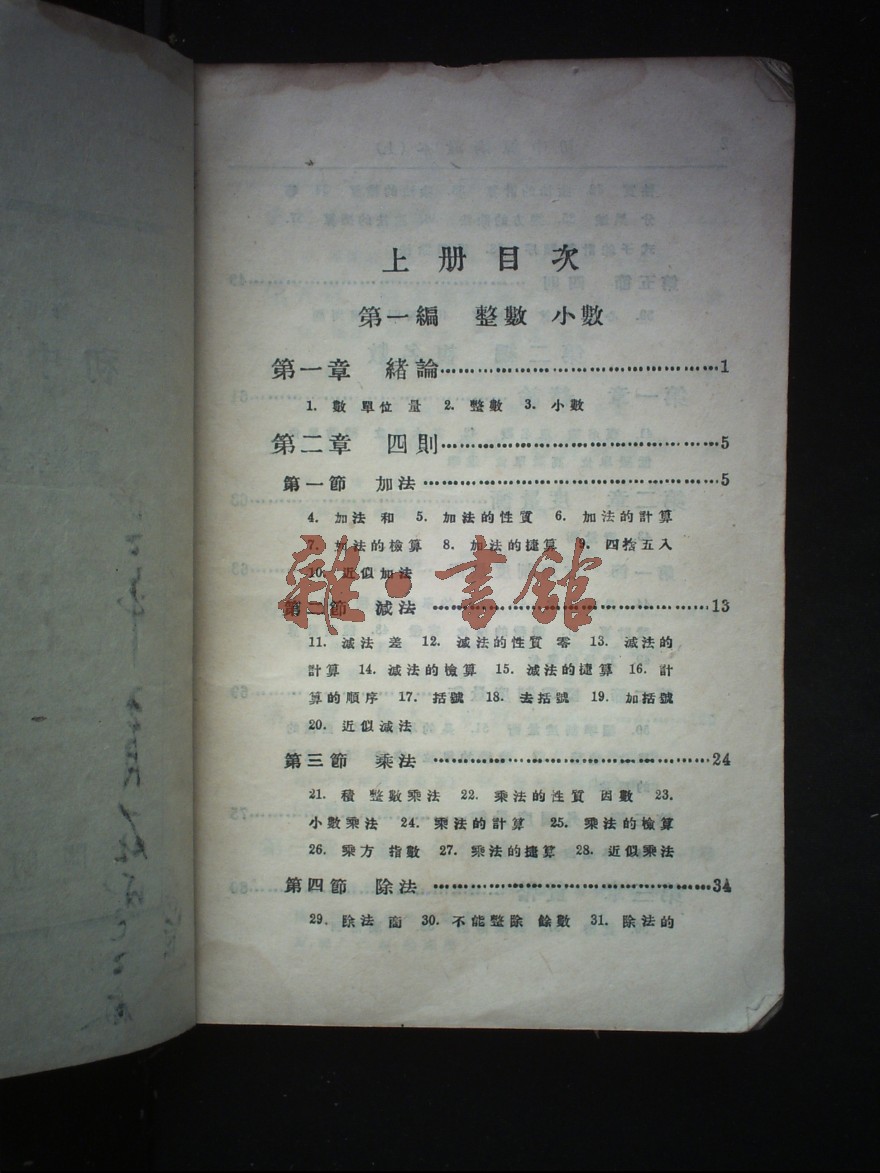 上册目次
第一編 整數 小數
第一章 緒論……1
1. 數 單位 量 2. 整數 3. 小數
第二章 四則……5
第一節 加法……5
4. 加法 和 5. 加法的性質 6. 加法的計算
7. 加法的檢算 8. 加法的捷算 9. 四捨五入
10. 近似加法
雜·書館
第二節 減法……13
11. 減法 差 12. 減法的性質 零 13. 減法的
計算 14. 減法的檢算 15. 減法的捷算 16. 計
算的順序 17. 括號 18. 去括號 19. 加括號
20. 近似減法
第三節 乘法……24
21. 積 整數乘法 22. 乘法的性質 因數 23.
小數乘法 24. 乘法的計算 25. 乘法的檢算
26. 乘方 指數 27. 乘法的捷算 28. 近似乘法
第四節 除法……34
29. 除法 商 30. 不能整除 餘數 31. 除法的